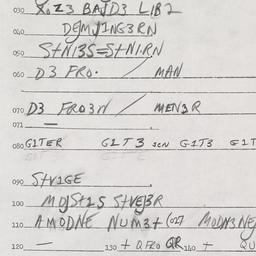 030 X.Z3 BAJD3 LIB2
040 DEMJING3RN
050 S+NIBS=S+NIRN
060 D3 FRO. / MAN
070 D3 FRO3N / MEN3R
071 —
080 GITER GIT3 GIT3 GIT
090 S+VIGE
100 MOJS+IS S+VEJ3R
110 AMODNE NUM3+ (027 MODN3NE
120 — 130 + QFZO QR 140 + QU